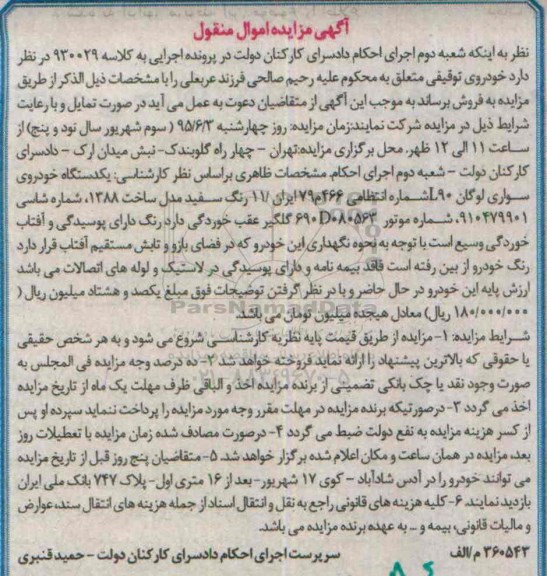 آگهی مزایده اموال منقول
نظر به اینکه شعبه دوم اجرای احکام دادسرای کارکنان دولت در پرونده اجرایی به کلاسه ۹۳۰۰۲۹ در نظر
دارد خودروی توقیفی متعلق به محکوم علیه رحیم صالحی فرزند عربعلی را با مشخصات ذیل الذکر از طریق
مزایده به فروش برساند به موجب این آگهی از متقاضیان دعوت به عمل می آید در صورت تمایل و با رعایت
شرایط ذیل در مزایده شرکت نمایند:زمان مزایده: روز چهارشنبه ۹۵/۶/۳ ( سوم شهریور سال نود و پنج) از
ساعت ۱۱ الی ۱۲ ظهر. محل برگزاری مزایده:تهران – چهار راه گلوبندک- نبش میدان ارک – دادسرای
کارکنان دولت – شعبه دوم اجرای احکام. مشخصات ظاهری براساس نظر کارشناسی: یکدستگاه خودروی
سواری لوگان L۹۰شماره انتظامی ۴۶۶م۷۹ ایران /۱۱ رنگ سفید مدل ساخت ۱۳۸۸، شماره شاسی
۹۱۰۴۷۹۹۰۱، شماره موتور ۶۹۰D۰۸۰۵۶۳ گلگیر عقب خوردگی دارد رنگ دارای پوسیدگی و آفتاب
خوردگی وسیع است با توجه به نحوه نگهداری این خودرو که در فضای بازو و تابش مستقیم آفتاب قرار دارد
رنگ خودرو از بین رفته است فاقد بیمه نامه و دارای پوسیدگی در لاستیک و لوله های اتصالات می باشد
ارزش پایه این خودرو در حال حاضر و با در نظر گرفتن توضیحات فوق مبلغ یکصد و هشتاد میلیون ریال (
۱۸۰/۰۰۰/۰۰۰ ریال) معادل هیجده میلیون تومان می باشد.
شرایط مزایده: ۱-مزایده از طریق قیمت پایه نظریه کارشناسی شروع می شود و به هر شخص حقیقی
یا حقوقی که بالاترین پیشنهاد را ارائه نماید فروخته خواهد شد ۲- ده درصد وجه مزایده فی المجلس به
صورت وجود نقد یا چک بانکی تضمینی از برنده مزایده اخذ و الباقی ظرف مهلت یک ماه از تاریخ مزایده
اخذ می گردد ۳- درصورتیکه برنده مزایده در مهلت مقرر وجه مورد مزایده را پرداخت ننماید سپرده او پس
از کسر هزینه مزایده به نفع دولت ضبط می گردد ۴- درصورت مصادف شده زمان مزایده با تعطیلات روز
بعد، مزایده در همان ساعت و مکان اعلام شده برگزار خواهد شد. ۵-متقاضیان پنج روز قبل از تاریخ مزایده
می توانند خودرو را در آدس شادآباد – کوی ۱۷ شهریور- بعد از ۱۶ متری اول- پلاک ۷۴۷ بانک ملی ایران
بازدید نمایند. ۶-کلیه هزینه های قانونی راجع به نقل و انتقال اسناد از جمله هزینه های انتقال سند، عوارض
و مالیات قانونی، بیمه و ... به عهده برنده مزایده می باشد.
۳۶۰۵۴۳ م/الف سرپرست اجرای احکام دادسرای کارکنان دولت – حمید قنبری